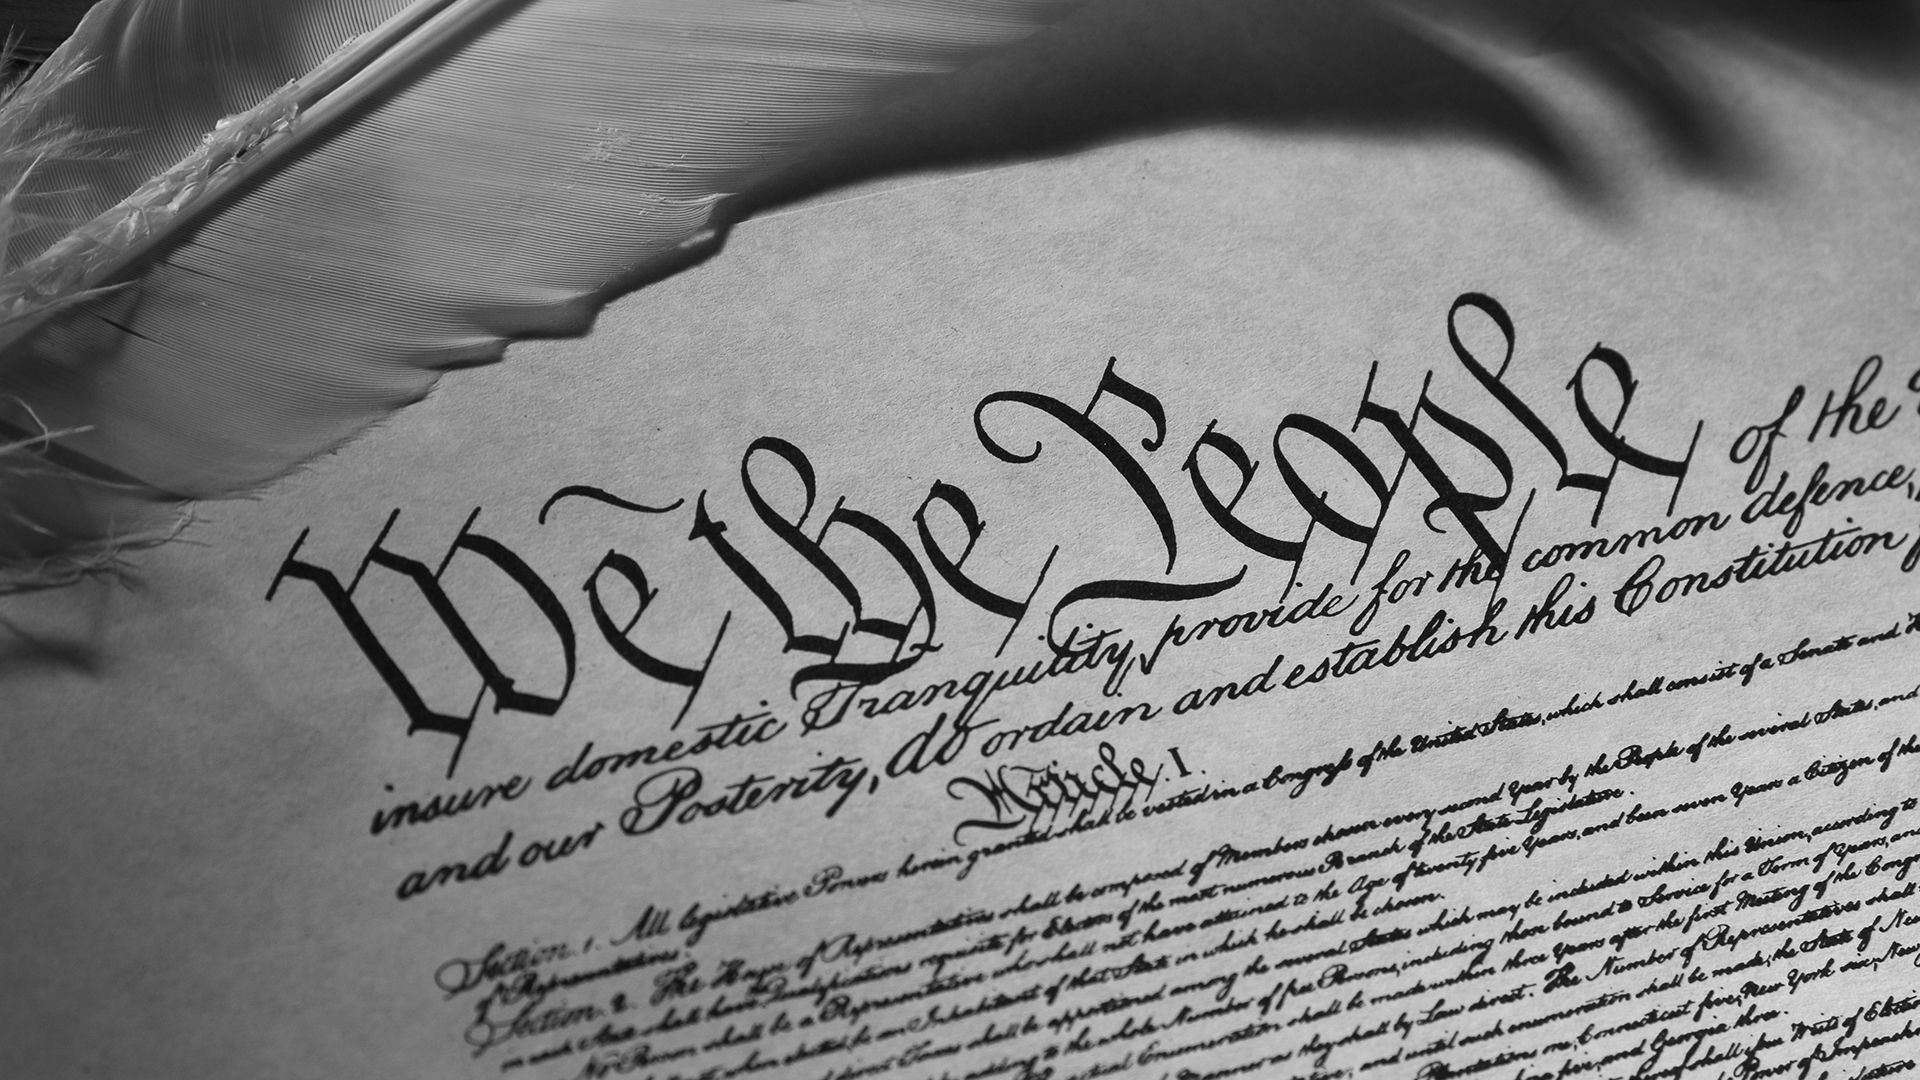 We the People of the
insure domestic Tranquility, provide for the common defence,
and our Posterity, do ordain and establish this Constitution
Article. I.
Section. 1. All legislative Powers herein granted shall be vested in a Congress of the United States, which shall consist of a Senate and
of Representatives.
Section. 2. The House of Representatives shall be composed of Members chosen every second Year by the People of the several States, and
in each State shall have Qualifications requisite for Electors of the most numerous Branch of the State Legislature.
No Person shall be a Representative who shall not have attained to the Age of twenty five Years, and been seven Years a Citizen of the
when elected, be an Inhabitant of that State in which he shall be chosen.
direct Taxes shall be apportioned among the several States which may be included within this Union, according to
adding to the whole Number of free Persons, including those bound to Service for a Term of Years, and
actual Enumeration shall be made within three Years after the first Meeting of the
Manner as they shall by Law direct. The Number of Representatives shall
and until such enumeration shall be made, the State of New
Plantations one, Connecticut five, New York six, New
five, and Georgia three.
shall issue Writs of Election
Power of Impeachment